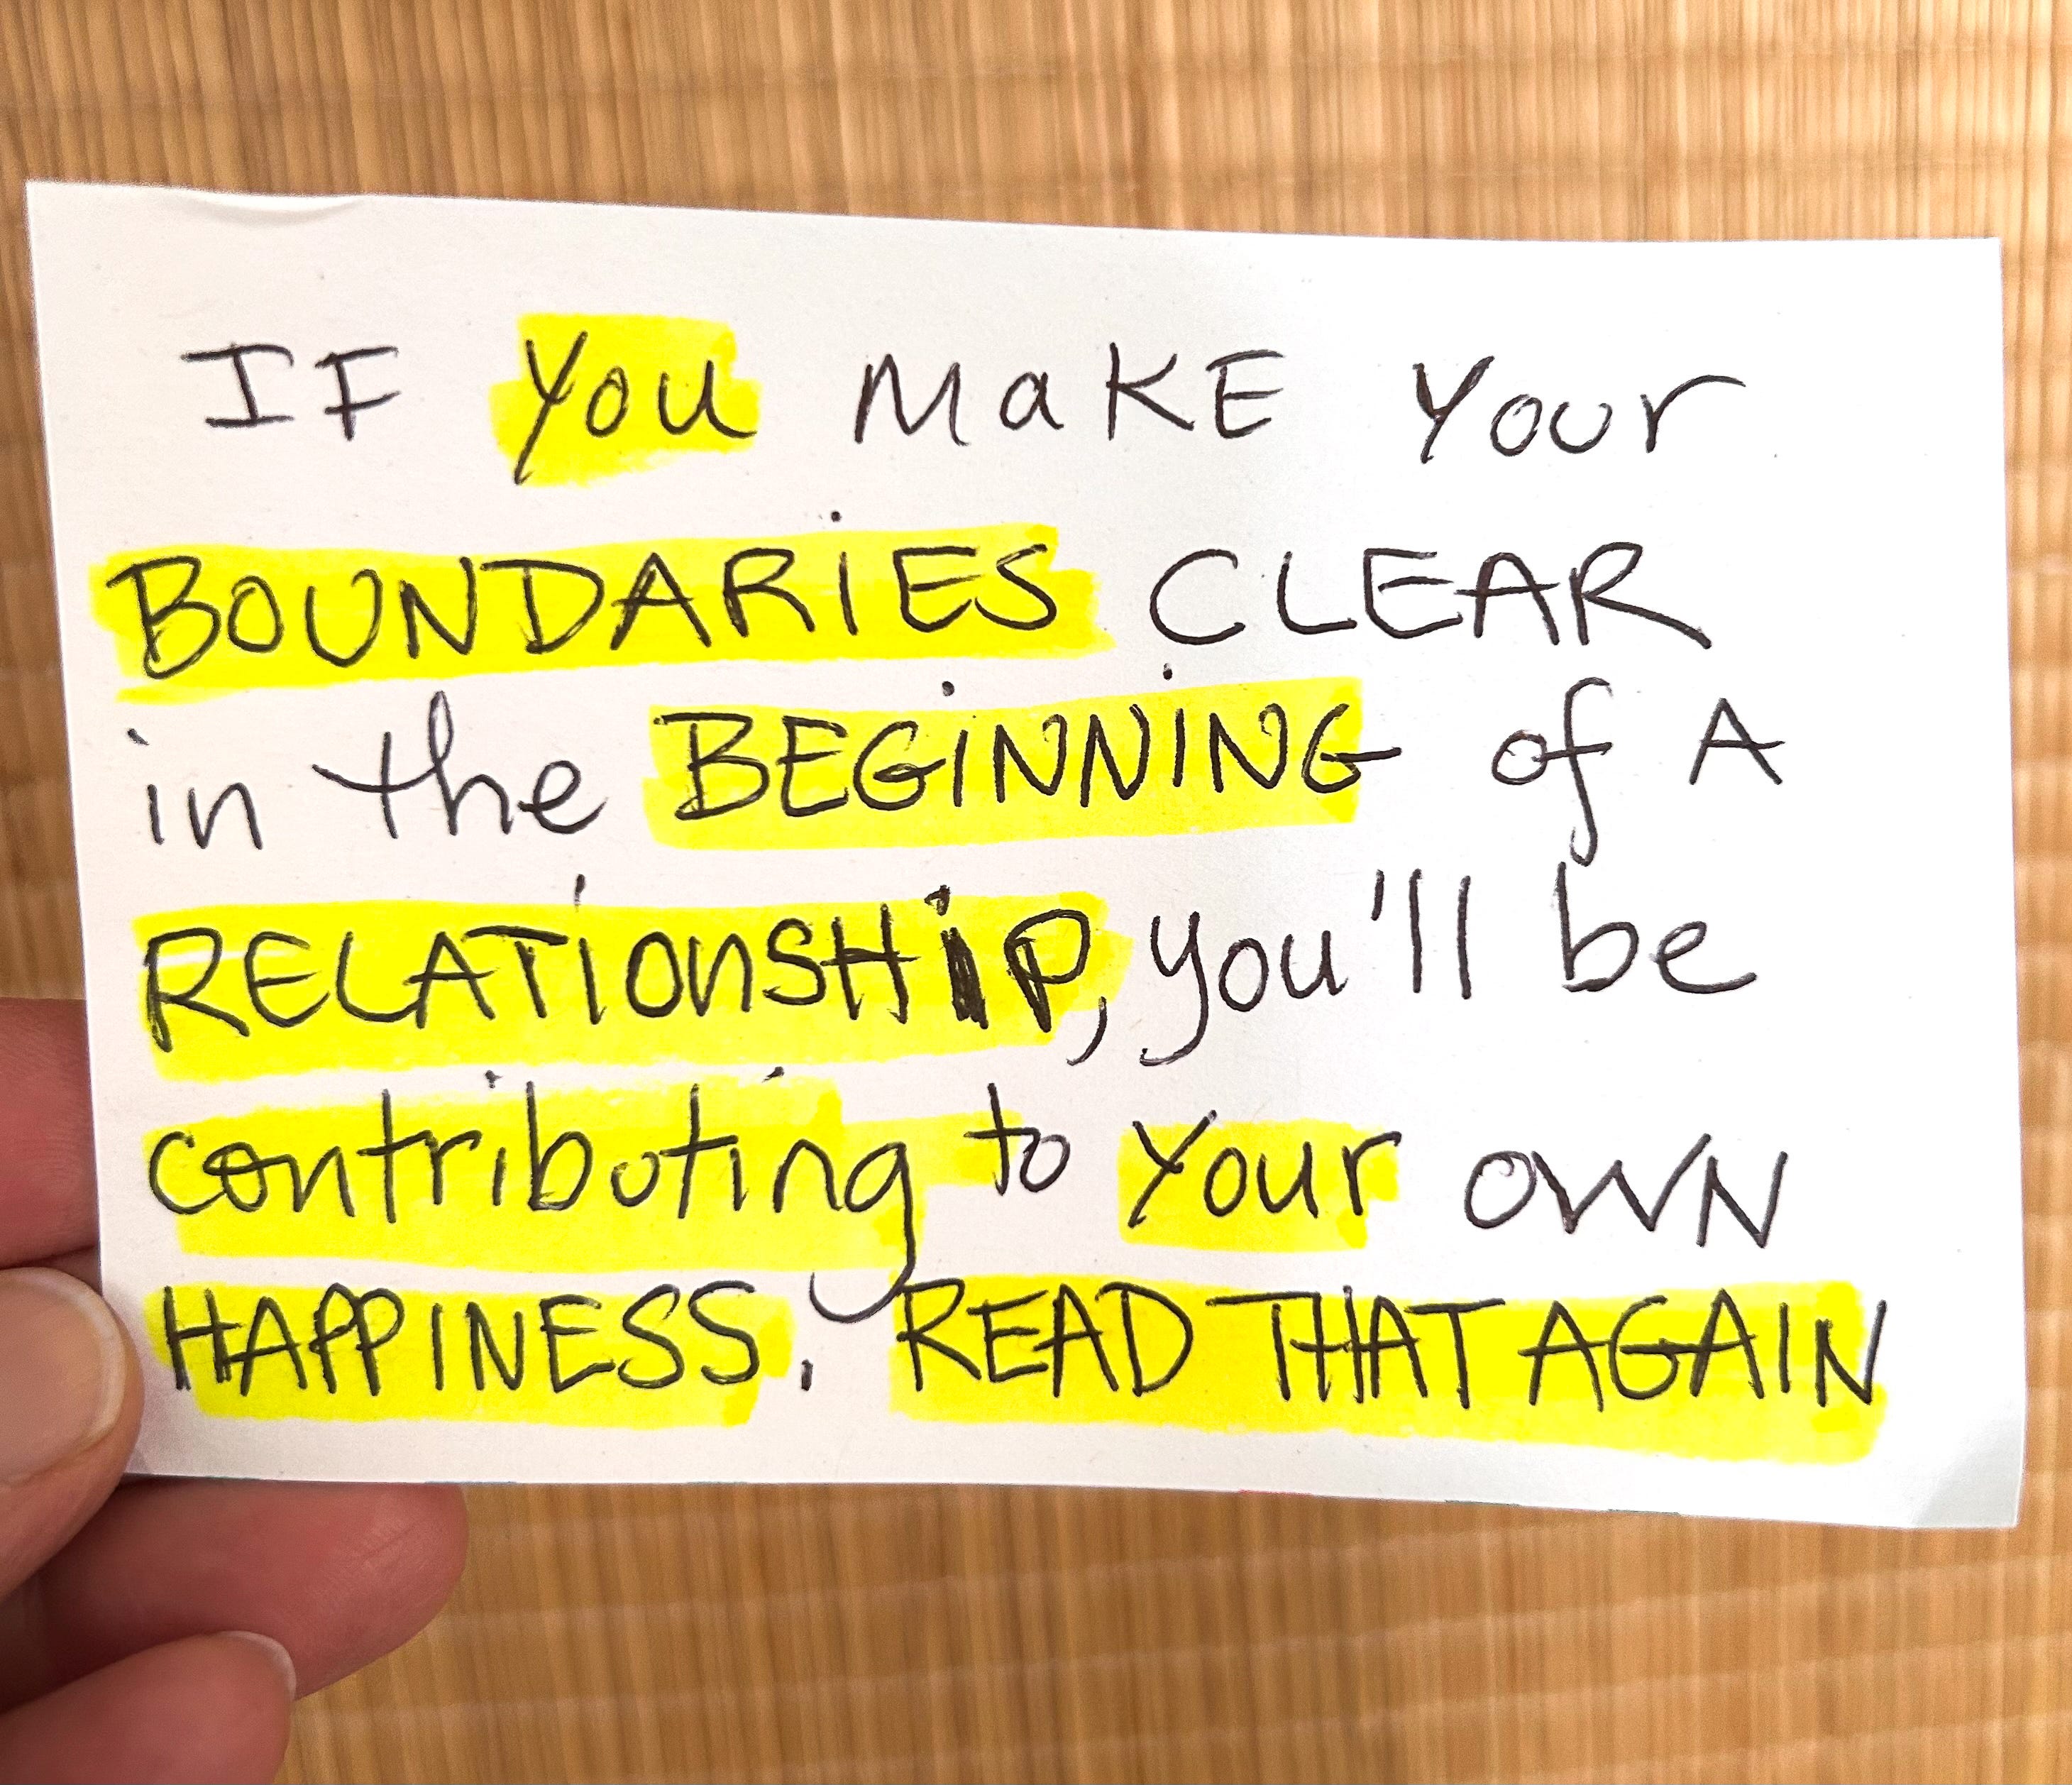 IF you MaKE Your
BOUNDARiES CLEAR
in the BEGiNNiNG of A
RELATionSHiP, you'll be
contributing to Your OWN
HAPPINESS. READ THAT AGAIN